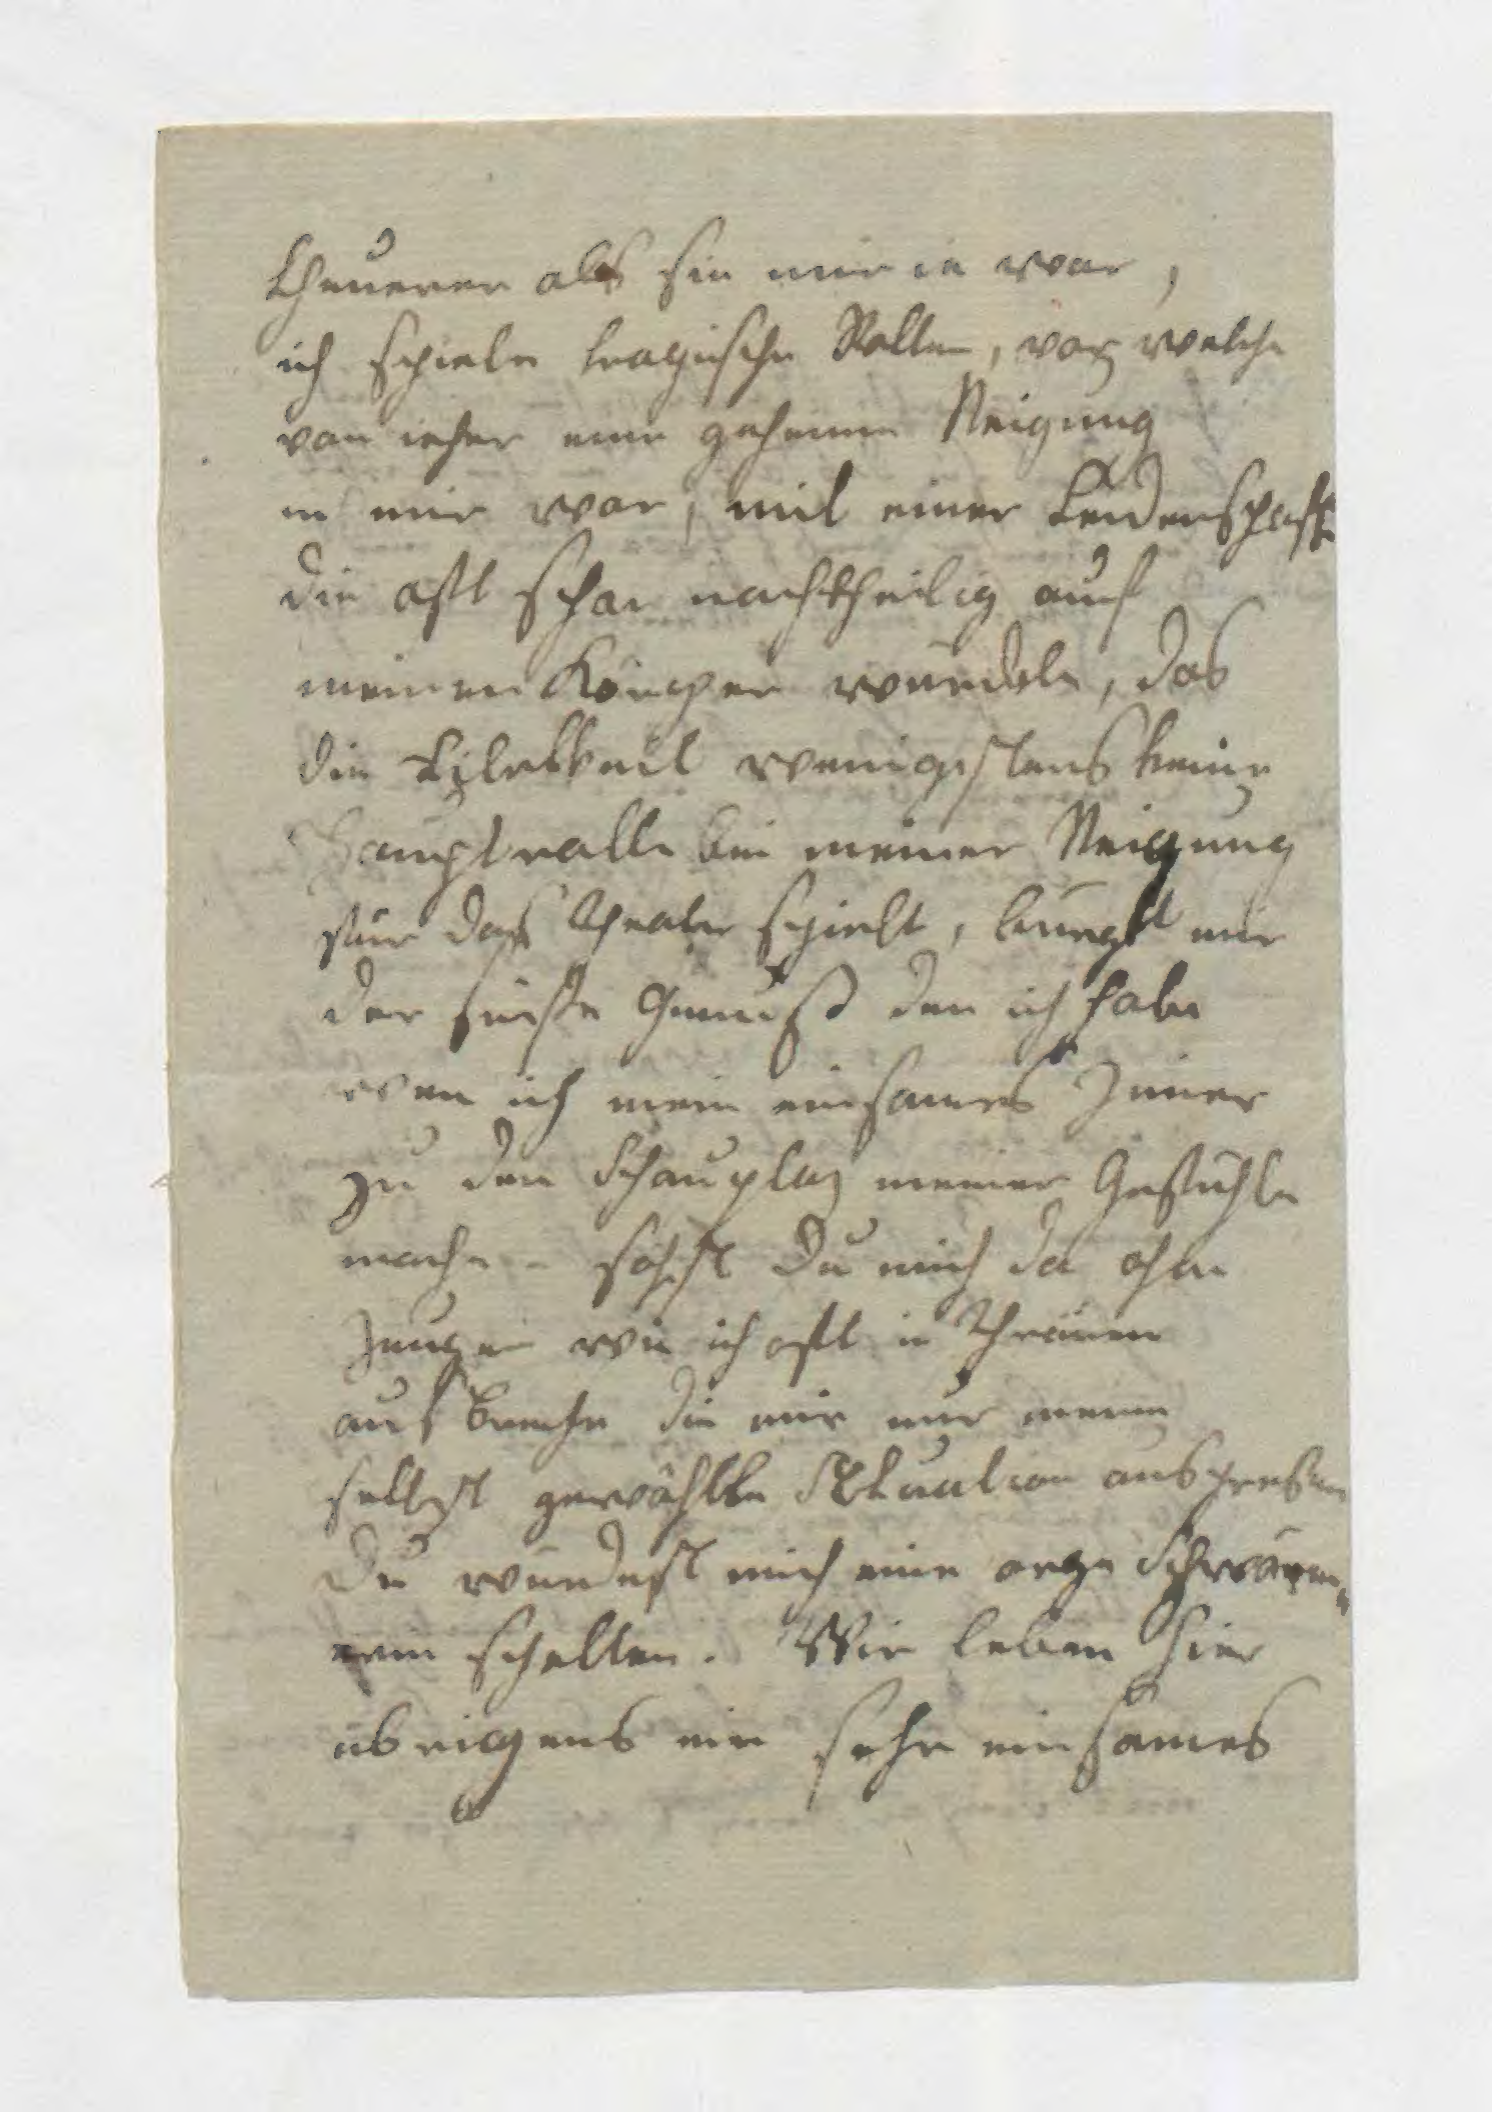 theurer als sie mir ie war,
ich spiele tragische Rollen, vor welche
von ieher eine geheime Neigung
in mir war, mit einer Leidenschaft
die oft schon nachtheilig auf
meinen Körper würckte, das
die Eitelkeit wenigstens keine
Hauptrolle bei meiner Neigung
für das Theater spielt, bürgt mir
der süste Genuß den ich habe
wen ich mein einsames Zimer
zu den Schauplaz meiner Gefühle
mache - sähst du mich da ohne
Zeugen wie ich oft in Thränen
ausbreche die mir nur meine
selbst gewählte Situation auspressen
Du würdest mich eine arge Schwärm„
erin schelten. Wir leben hier
übrigens ein sehr einsames